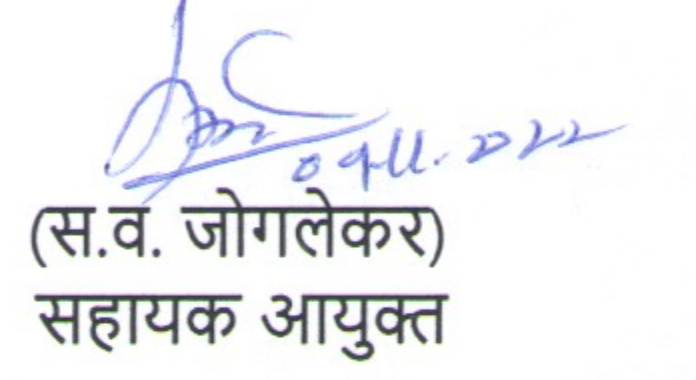 09.11.2022
(स.व. जोगलेकर)
सहायक आयुक्त